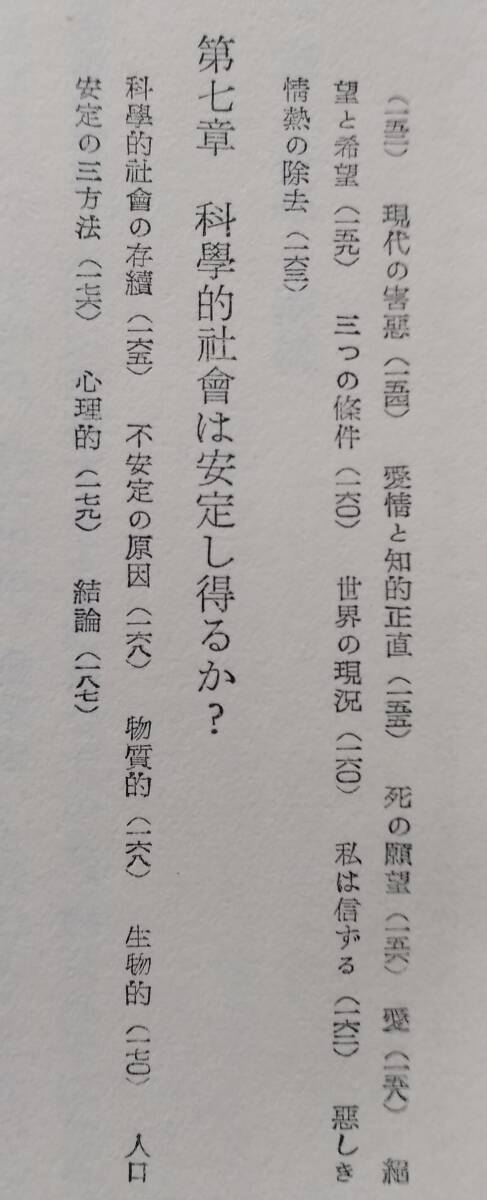 （一五三）　現代の害惡（一五四）　愛情と知的正直（一五五）　死の願望（一五六）　愛（一五八）　絕
望と希望（一五九）　三つの條件（一六〇）　世界の現況（一六〇）　私は信ずる（一六二）　惡しき
情熱の除去（一六三）
第七章　科學的社會は安定し得るか？
科學的社會の存續（一六五）　不安定の原因（一六八）　物質的（一六八）　生物的（一七〇）　人口
安定の三方法（一七六）　心理的（一七九）　結論（一八七）